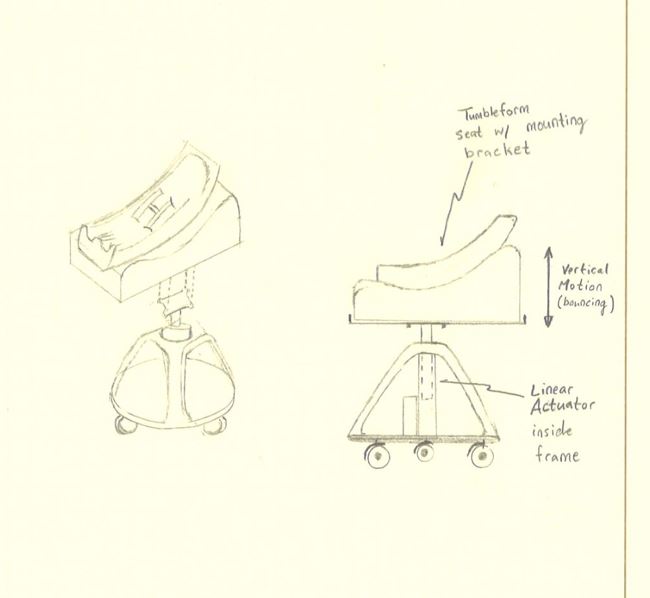 Tumbleform
seat w/ mounting
bracket
Vertical
Motion
(bouncing)
Linear
Actuator
inside
frame